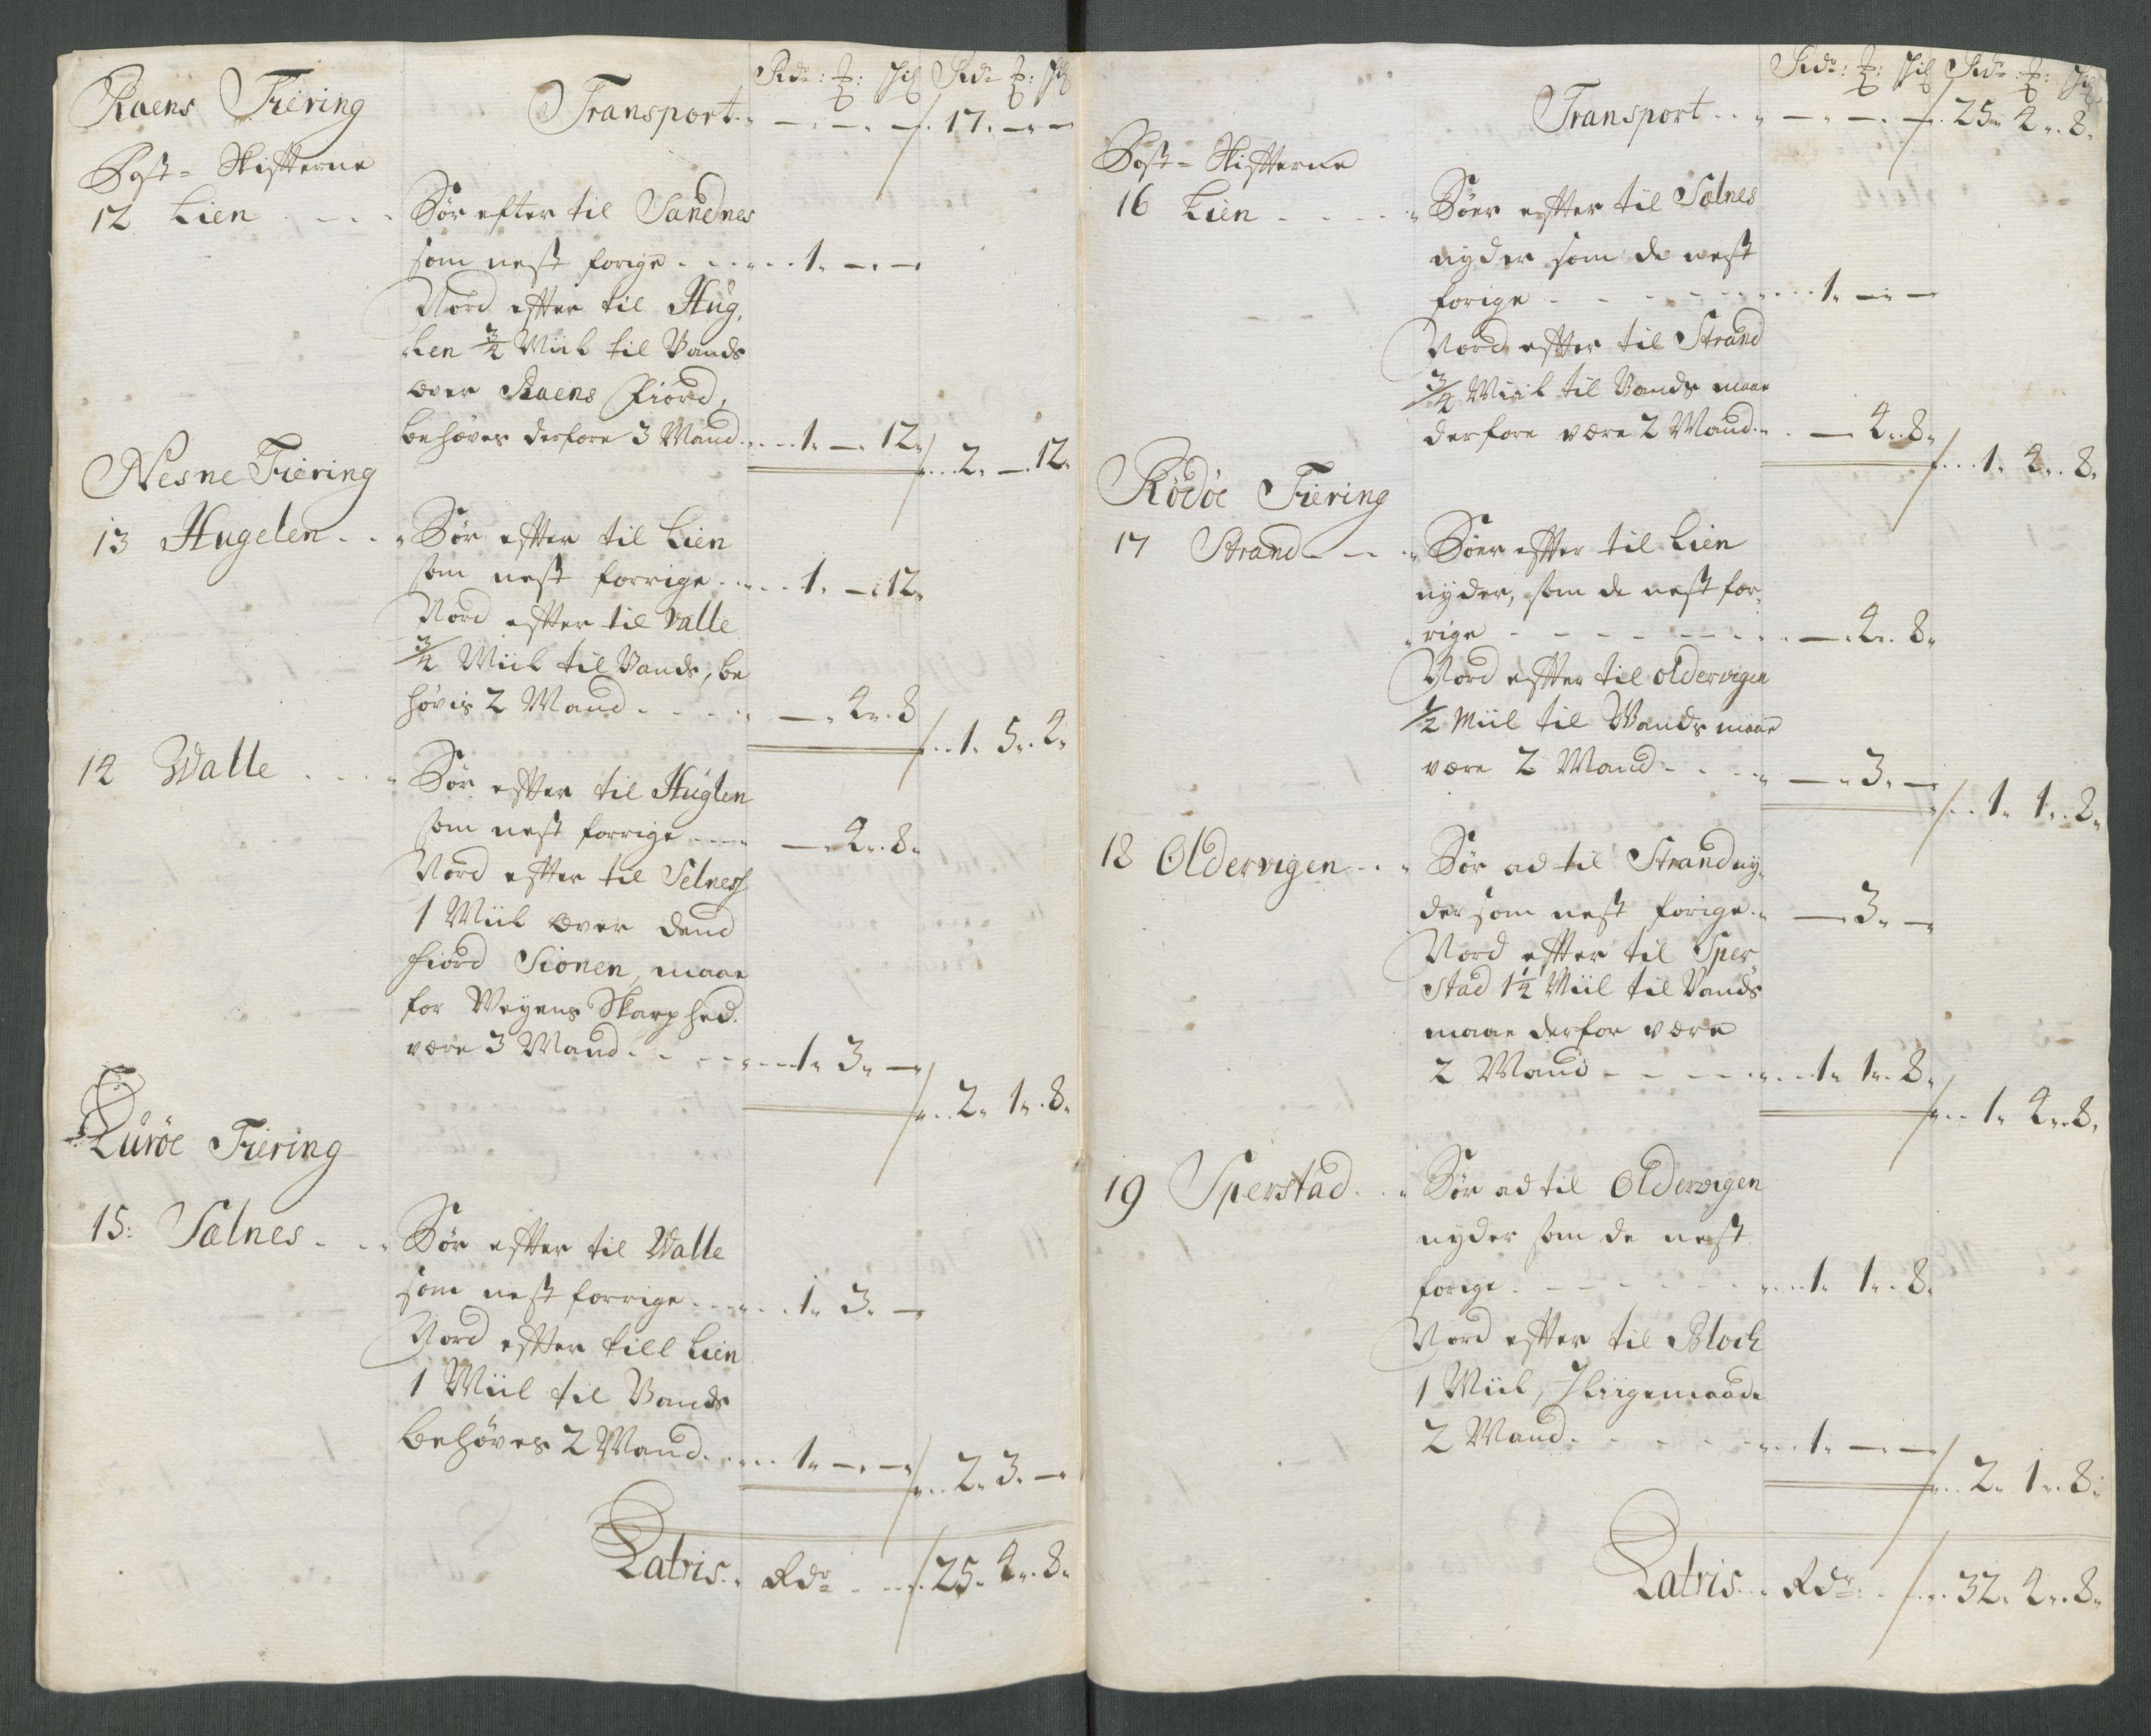 Raens Fiering
Transport . . — . — . — . 17. — . —
Post = Skifterne
12 Lien . — . — . Sør efter til Sandnes
som nest forige . . . . . 1. — . —
Nord effter til Hug,
len 3/4 Miil til Vands
over Raens Fiord,
behøves derfore 3 Mand . . . . 1. — . 12. 2. — . 12.
Nesne Fiering
13 Hugelen . . . Sør effter til Lien
som nest forrige . . . . 1. — . 12.
Nord effter til Valle
3/4 Miil til Vands, be
høvis 2 Mand . . . . — . 4. . 8 1. 5. . 4.
14 Walle . . . . Sør effter til Huglen
som nest forrige . . . . — . 4. . 8.
Nord effter til Selness
1 Miil over dend
fiord Sionen, maae
for Veyens Skarphed
være 3 Mand . . . . 1. 3. — 2. 1. . 8.
Lurøe Fiering
15: Sælnes . . . Sør effter til Walle
som nest forrige . . . . 1. 3. —
Nord effter till Lien
1 Miil til Vands
behøves 2 Mand . . . . 1. — . — 2. 3. —
Latris . . Rdr . . . 25. 4. . 8.
Transport . . . — . — . — . 25. 4. . 8.
Post = Skiffterne
16 Lien . . . . Søer effter til Sælnes
nyder som de nest
forige . . . . . . 1. — . —
Nord effter til Strand
3/4 Miil til Vands maae
derfore være 2 Mand . . — 4. . 8. 1. 4. . 8.
Rødøe Fiering
17 Strand . — . — Søer effter til Lien
nyder, som de nest for,
rige . . . . . . — . 4. . 8.
Nord effter til oldervigen
1/2 Miil til Wands maae
være 2 Mand . . . . — . 3. — 1. 1. . 8.
18 Oldervigen . . . Sør ad til Strand ny,
der som nest forige . . — . 3. —
Nord effter til Sper
stad 1 1/4 Miil til Vands
maae derfor være
2 Mand . . . . . 1. 1. . 8. 1. 4. . 8.
19 Sperstad . . . Sør ad til Oldervigen
nyder som de nest
forige . . . . . . 1. 1. . 8.
Nord effter til Bloch
1 Miil, Jliigemaade
2 Mand . . . . . 1. — . — 2. 1. . 8.
Latris . . Rdr . . . 32. 4. . 8.